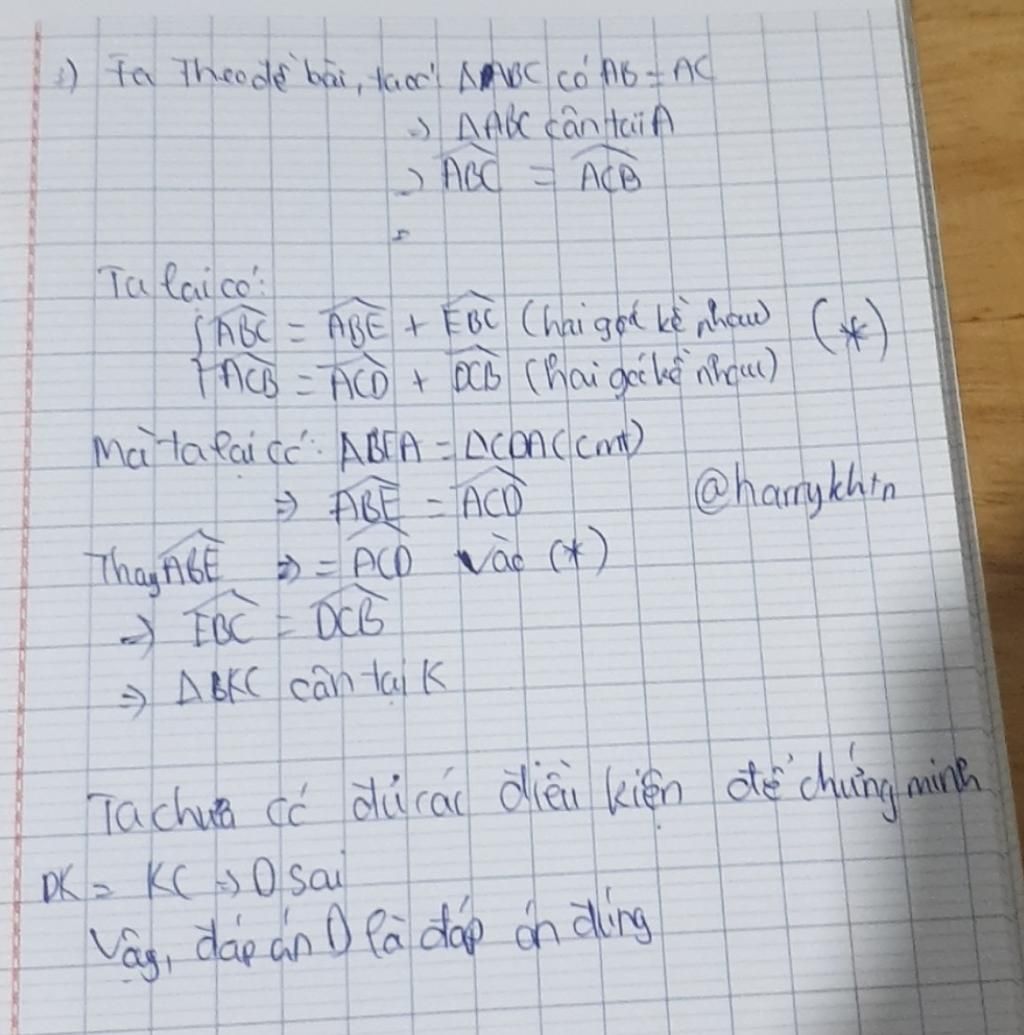 Ta Theo đề bài, ta có: ΔABC có AB = AC
=> ΔABC cân tại A
=> ABC = ACB
=
Ta lại có:
{ ABC = ABE + EBC (hai góc kề nhau) (*)
ACB = ACD + DCB (hai góc kề nhau)
Mà ta lại có: ΔBEA = ΔCDA (cmt)
=> ABE = ACD
@harrykhtn
Thay ABE => = ACD vào (*)
=> EBC = DCB
=> ΔBKC cân tại K
Ta chưa có đủ các điều kiện để chứng minh
DK = KC => D sai
Vậy, đáp án D là đáp án đúng